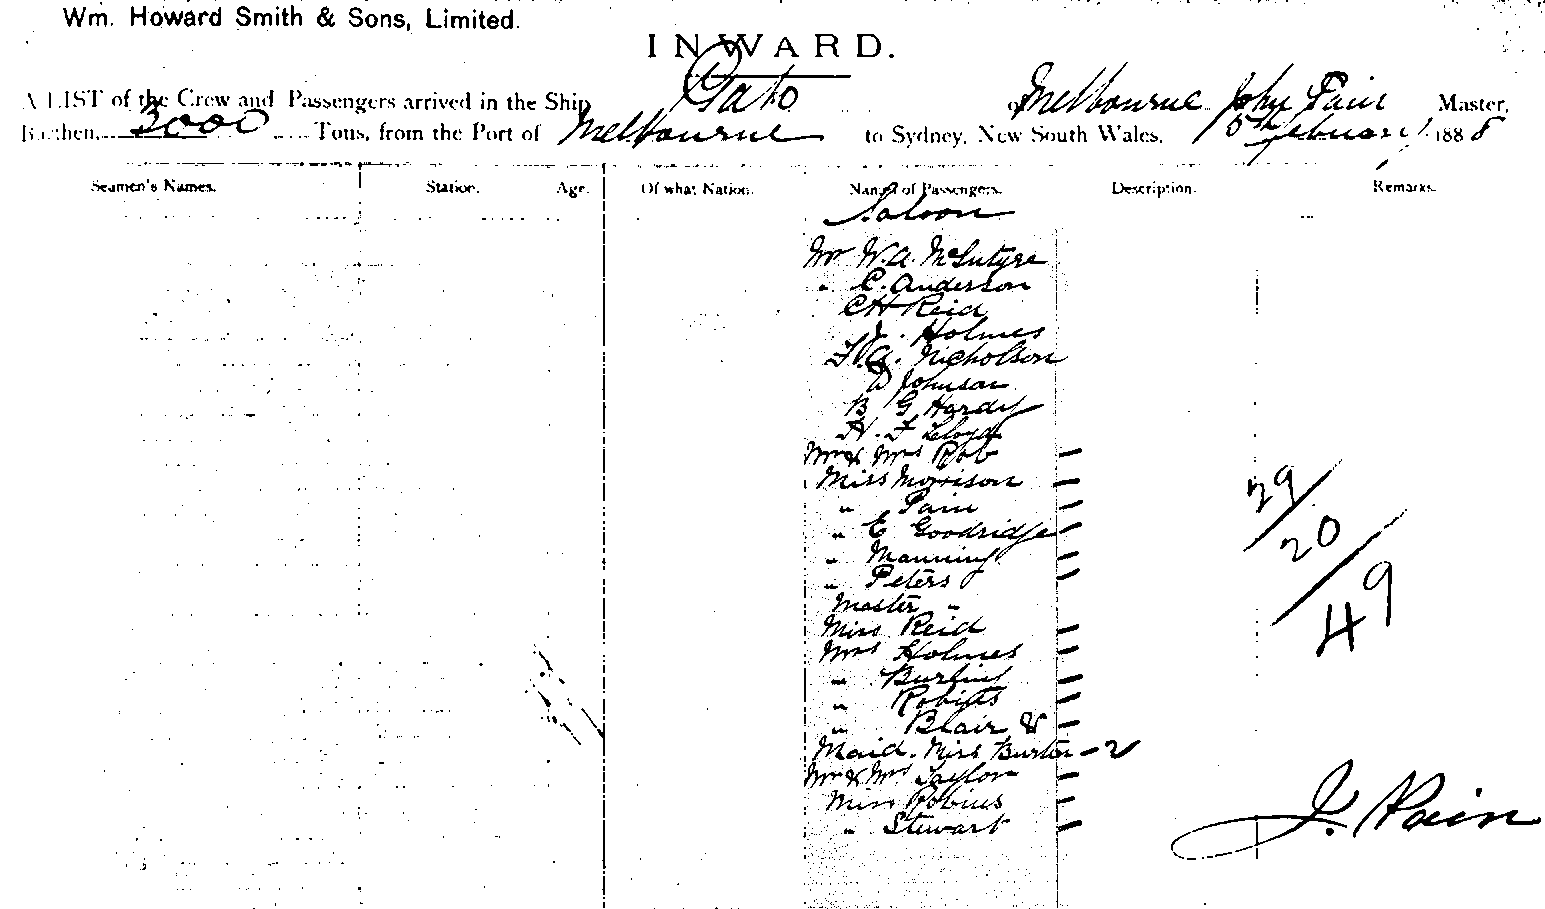 Wm. Howard Smith & Sons, Limited.
INWARD.
A LIST of the Crew and Passengers arrived in the Ship Gabo of Melbourne John Pain Master,
Burthen, 3000 Tons, from the Port of Melbourne to Sydney, New South Wales, 6th February 1888
Seamen's Names. Station. Age. Of what Nation. Names of Passengers. Description. Remarks.
Saloon
Mr W.A. McIntyre
" E. Anderson
C H Reid
J. Holmes
F. A. Nicholson
D Johnson
B G Hardy
H. F Lloyd
Mr & Mrs Rob
Miss Morrison
" Pain
" E Goodridge
" Manning
" Peters
Master "
Miss Reid
Mrs Holmes
"
"
" Blair &
Maid. Miss Burton - 2
Mr & Mrs Taylor
Miss Robins
" Stewart
29/
20/
49
J. Pain